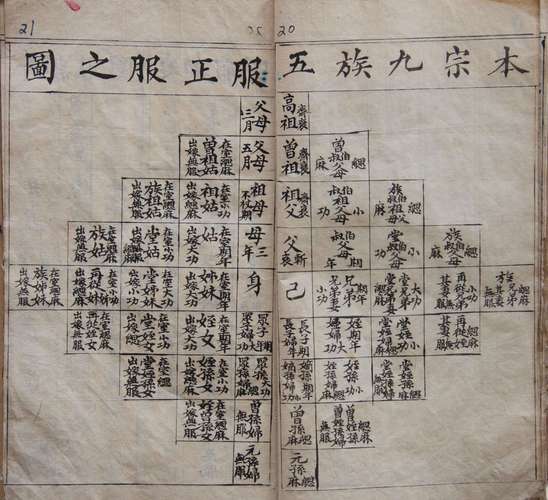 21
20
本宗九族五服正服之圖
高祖 齊衰
父母 三月
曾伯叔父母 緦麻
曾祖 齊衰
父母 五月
曾祖姑 在室緦麻 出嫁無服
族伯叔祖父母 緦麻
伯叔祖父母 小功
祖父 齊衰
祖母 不杖期
祖姑 在室小功 出嫁緦麻
族祖姑 在室緦麻 出嫁無服
族伯叔父母 緦麻
堂伯叔父母 小功
伯叔父母 期年
父 斬衰
母 三年
姑 在室期年 出嫁大功
堂姑 在室小功 出嫁緦麻
族姑 在室緦麻 出嫁無服
族兄弟 緦麻 其妻無服
再從兄弟 小功 其妻無服
堂兄弟 大功 堂兄弟妻 緦麻
兄弟 期年 兄弟妻 小功
己
身
姊妹 在室期年 出嫁大功
堂姊妹 在室大功 出嫁小功
再從姊妹 在室小功 出嫁緦麻
族姊妹 在室緦麻 出嫁無服
再從姪 緦麻 其妻無服
堂姪 小功 堂姪婦 緦麻
姪 期年 姪婦 大功
長子 期年 長子婦 期年
眾子 期年 眾子婦 大功
姪女 在室期年 出嫁大功
堂姪女 在室小功 出嫁緦麻
再從姪女 在室緦麻 出嫁無服
堂姪孫 緦麻 堂姪孫婦 無服
姪孫 小功 姪孫婦 緦麻
嫡孫 期年 嫡孫婦 小功
眾孫 大功 眾孫婦 緦麻
姪孫女 在室小功 出嫁緦麻
堂姪孫女 在室緦麻 出嫁無服
曾姪孫 緦麻 曾姪孫婦 無服
曾孫 緦麻
曾孫婦 無服
曾姪孫女 在室緦麻 出嫁無服
元孫 緦麻
元孫婦 無服